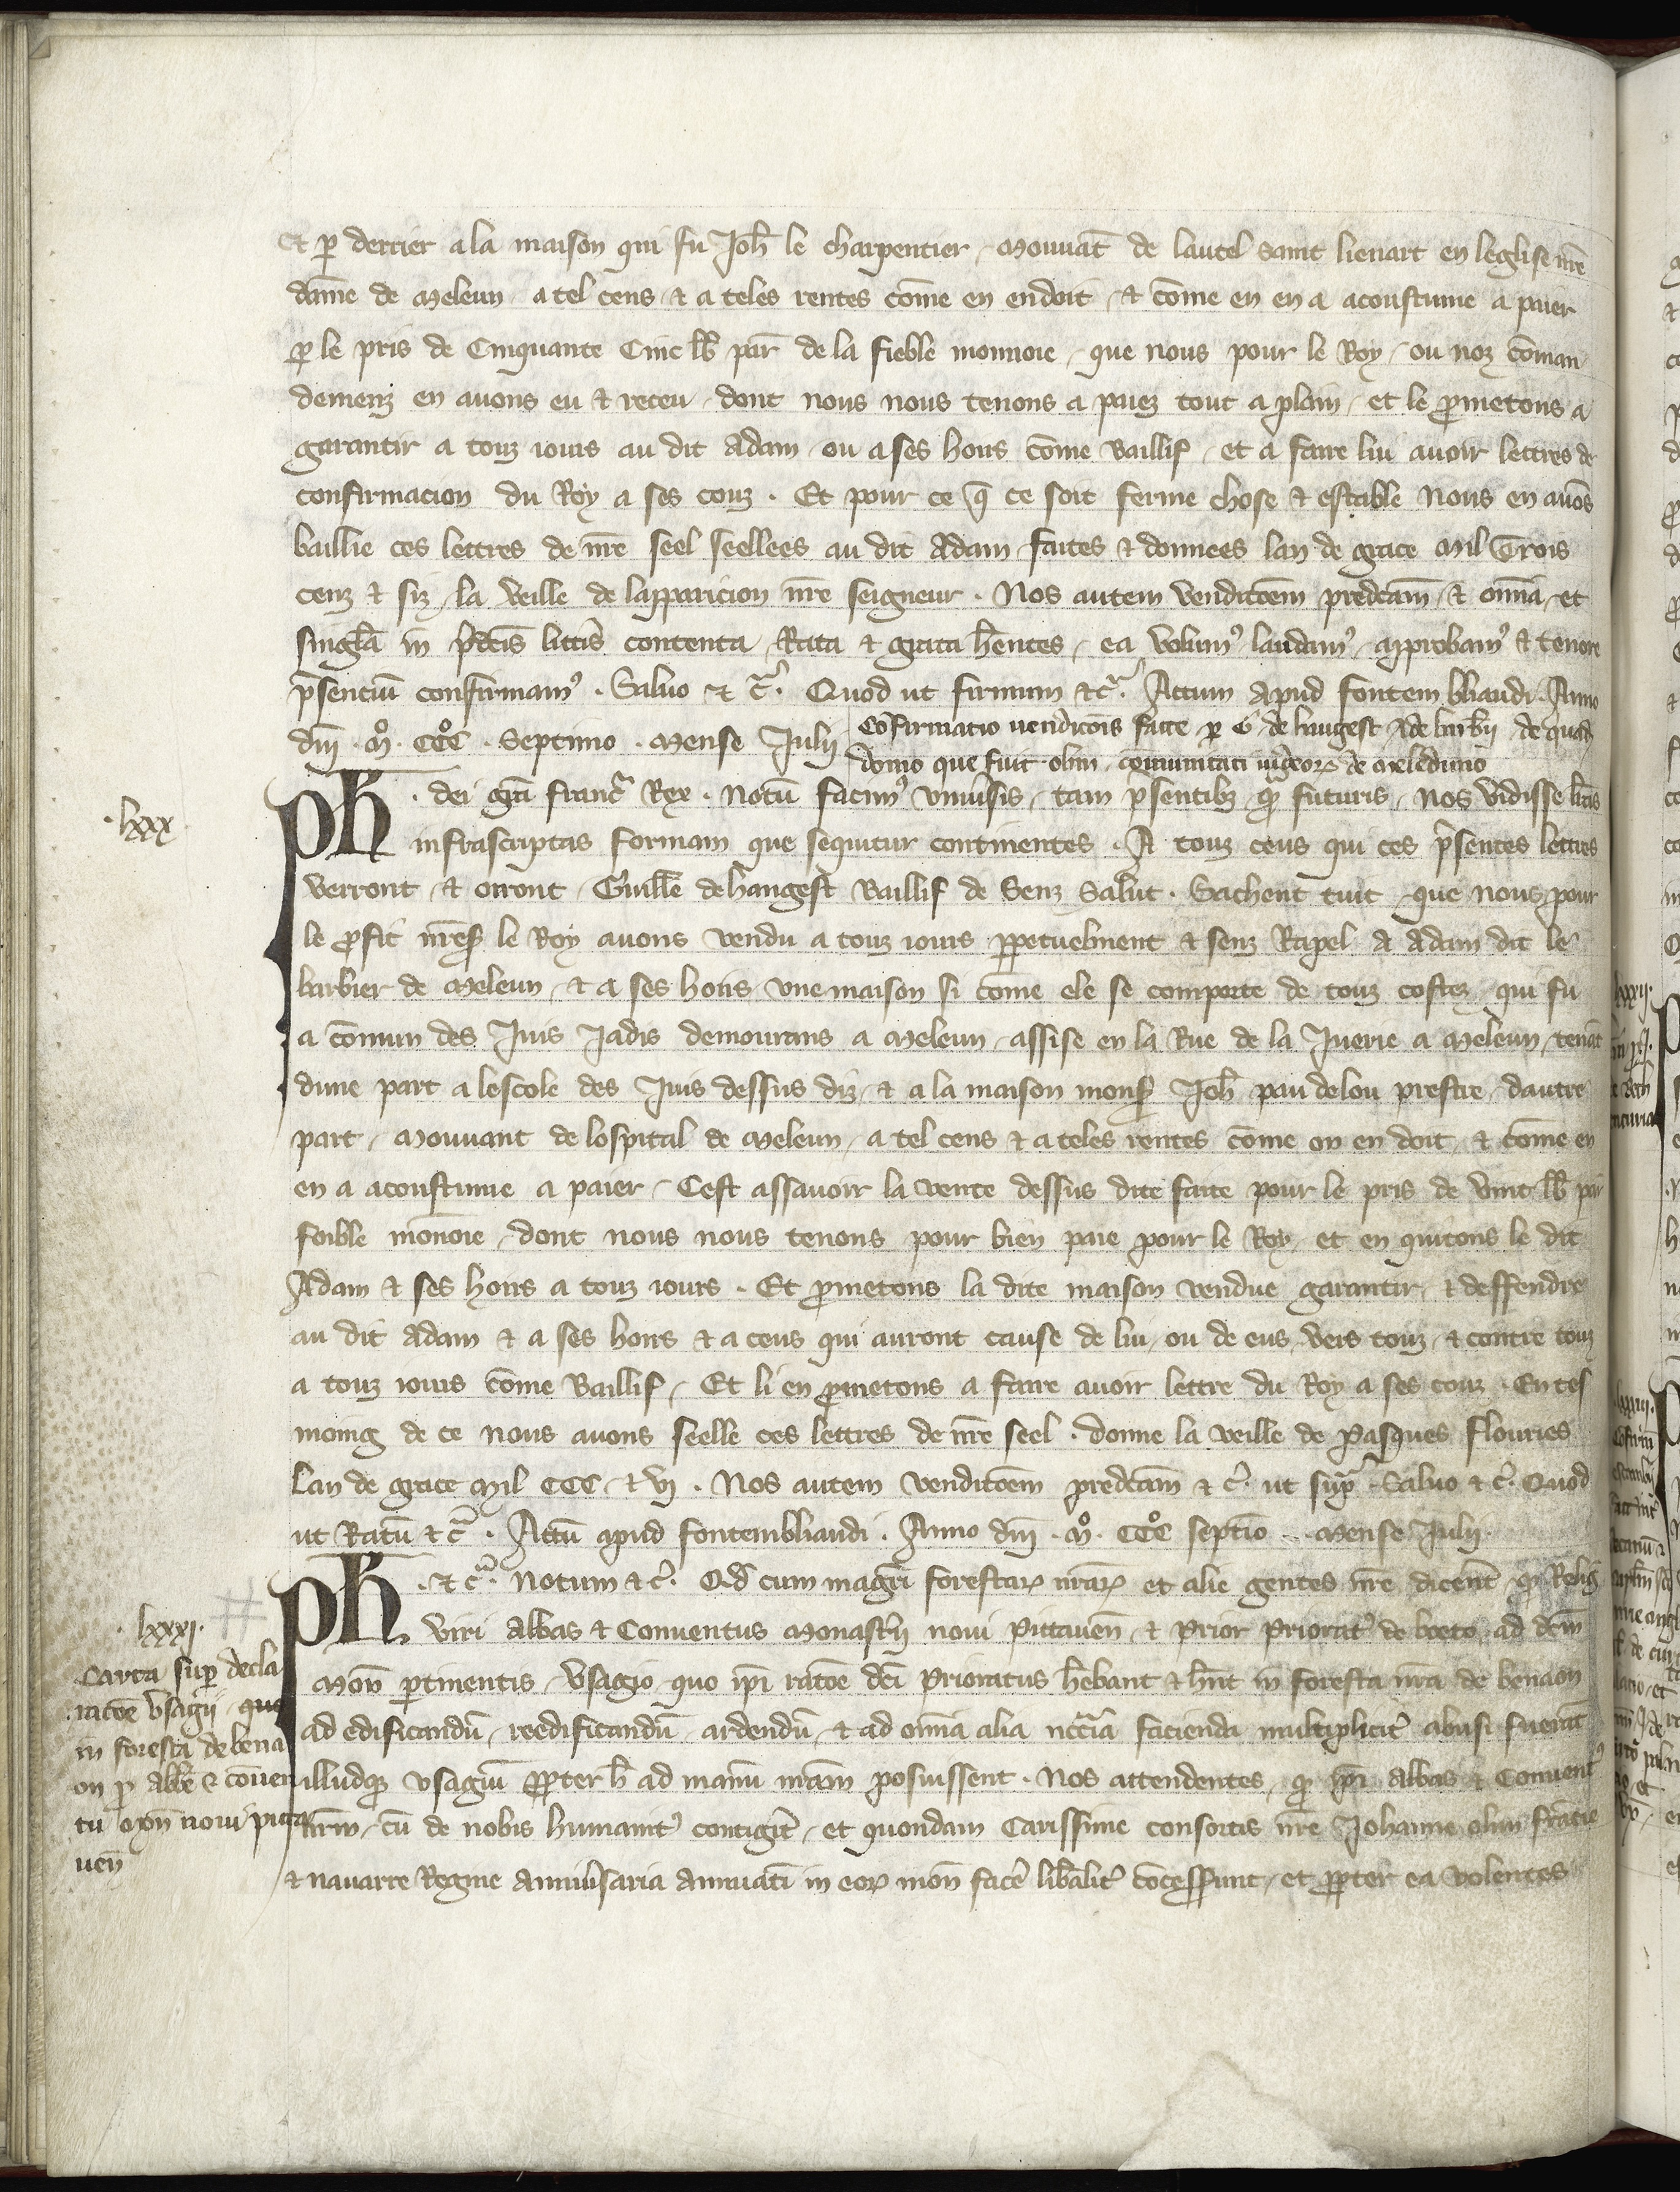 Et ꝑ derrier a la maison qui fu Joh̄ le charpentier, Mouuāt de lautel saint lienart en leglise nr̄e
dame de Meleun, a tel cens & a teles rentes cōme en en doit, & cōme en en a acoustume a paier
ꝑ le pris de Cinquante Cinc lb̄ par̄ de la fieble monnoie, que nous pour le Roy, ou noz cōman
demenz en auons eu & receu, dont nous nous tenons a paiez tout a plain, et le ꝓmetons a
garantir a touz iours au dit Adam, ou a ses hoirs cōme Baillif, et a faire lui auoir lettres de
confirmacion du Roy a ses couz. Et pour ce q̄ ce soit ferme chose & estable Nous en auōs
baillie ces lettres de nr̄e seel seellees au dit Adam, faites & donnees lan de grace Mil Trois
cenz & siz, la Veille de lapparicion nr̄e seigneur. Nos autem Vendicōem predcām, & om̄ia, et
singl̄a in p̄dcīs litt̄is contenta, Rata & grata h̄entes, ea Volum⁹, laudam⁹, approbam⁹ & tenore
p̄senciū confirmam⁹. Saluo & c̄. Quod ut firmum & c̄. Actum apud fontem bliaudi. Anno
dn̄i. M̊. CCC̊. Septimo. Mense Julij
Cōfirmatio uendicōis facte ꝑ G. de hangest Ade barb̄ij de quad̄
domo que fuit olim cōmunitati iudeoꝝ de meleduno
.lxxx
Ph̄. dei gr̄a franc̄ Rex. Notū facim⁹ Vniūsis, tam p̄sentibꝫ qͣ futuris, Nos Vidisse litt̄as
infrascriptas formam que sequitur continentes. A touz ceus qui ces p̄sentes lettres
Verront, & orront, Guill̄e de hangest Baillif de Senz Salut. Sachent tuit, que nous pour
le ꝓfit nr̄eſ le Roy auons vendu a touz iours ꝑpetuelment & senz Rapel a Adam dit le
barbier de Meleun, & a ses hoirs, vne maison si cōme ele se comporte de touz costez, qui fu
a cōmun des Juis Jadis demourans a Meleun, assise en la Rue de la Juerie a Meleun, tenāt
dune part a lescole des Juis dessus diz, & a la maison monſ̄ Joh̄ pau de lou prestre, dautre
part, Mouuant de lospital de Meleun, a tel cens & a teles rentes cōme on en doit, & cōme en
en a acoustume a paier, Cest assauoir la vente dessus dite faite pour le pris de vint lb̄ par̄
foible mōnoie, dont nous nous tenons pour bien paie pour le Roy, et en quitons le dit
Adam & ses hoirs a touz iours. Et ꝓmetons la dite maison vendue garantir, & deffendre
au dit Adam & a ses hoirs & a ceus qui auront cause de lui, ou de eus, vers touz, & contre touz
a touz iours cōme Baillif, Et li en ꝓmetons a faire auoir lettre du Roy a ses couz. En tes
moing de ce nous auons seelle ces lettres de nr̄e seel. donne la veille de Pasques flouries
Lan de grace Mil CCC. & vj. Nos autem vendicōem predcām & c̄. ut sup̄. Saluo & c̄. Quod
ut Ratū & c̄. Actū apud fontembliaudi. Anno dn̄i. M̊. CCC̊ septīo. Mense Julij.
.lxxxj.
Carta suꝑ decla
racōe vsagij que
in foresta de bena
on ꝑ abb̄e & conuen
tū mon̄ noui picta
uen̄
Ph̄. & c̄. Notum & c̄. Qd̄ cum magr̄i forestaꝝ nr̄aꝝ et alie gentes nr̄e dicer̄ent, qͥ Reliḡ
viri abbas & Conuentus Monast̄ij noui Pictauen̄, & Prior Priorat⁹ de boeto, ad dc̄m
Mon̄ ꝑtinentis, vsagio quo ip̄i ratōe dc̄i Prioratus h̄ebant & hn̄t in foresta nr̄a de benaon
ad edificandū, reedificandū, ardendū, & ad om̄ia alia nccāria facienda multiplicit̄ abusi fuerāt
illudqꝫ vsagiū ꝓpter h̄ ad manū nr̄am posuissent. Nos attendentes, qͥ ip̄i abbas & Conuent⁹
nr̄m, cū de nobis humanit⁹ contigit̄, et quondam Carissime consortis nr̄e Johanne olim francie
& nauarre Regine Anniūsaria annuatī in eoꝝ mon̄ facē lib̄alit̄ cōcesserunt, et ꝓpter ea volentes